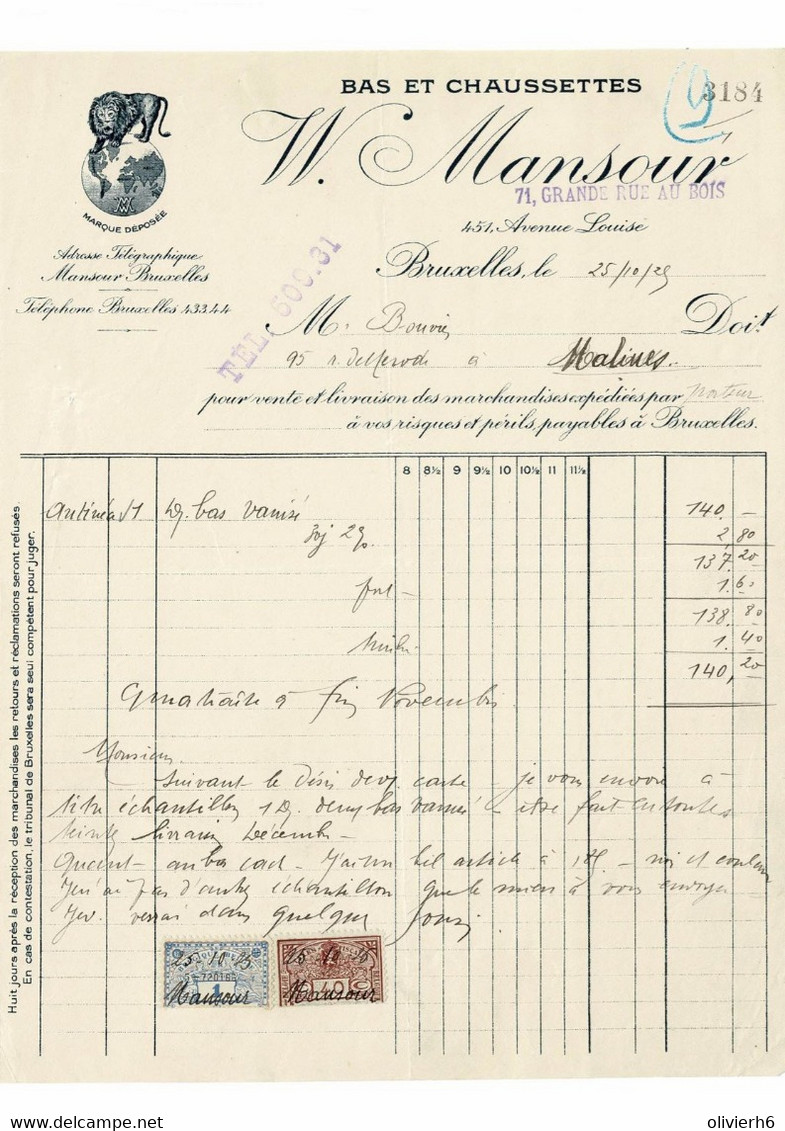 BAS ET CHAUSSETTES
3184
W. Mansour
71, GRANDE RUE AU BOIS
451, Avenue Louise
MARQUE DÉPOSÉE
Adresse Télégraphique
Mansour Bruxelles
Téléphone Bruxelles 433.44
TÉL. 509.31
Bruxelles, le 25/10/25
M. Bouvier Doit
95 r. de Merode à Malines.
pour vente et livraison des marchandises expédiées par porteur
à vos risques et périls, payables à Bruxelles.
8 8½ 9 9½ 10 10½ 11 11½
Antinéa 1 Dz. bas vanisé 140. —
30j 2% 2,80
137.20
port 1.60
138.80
timbre 1.40
140,20
à fin Novembre
Monsieur.
Suivant le désir de votre carte je vous envoie à
titre échantillon 1 Dz. bas vanisé être fait en toutes
teintes livraison Décembre
Quant au bas J'ai un bel article à noir et couleur
Je n'ai pas d'autre échantillon que le mien à vous envoyer
Je verrai dans quelque jours
25-10-25
720186
1
Mansour
25-10-25
40
Mansour
Huit jours après la réception des marchandises les retours et réclamations seront refusés
En cas de contestation, le tribunal de Bruxelles sera seul compétent pour juger.
delcampe.net
olivierh6